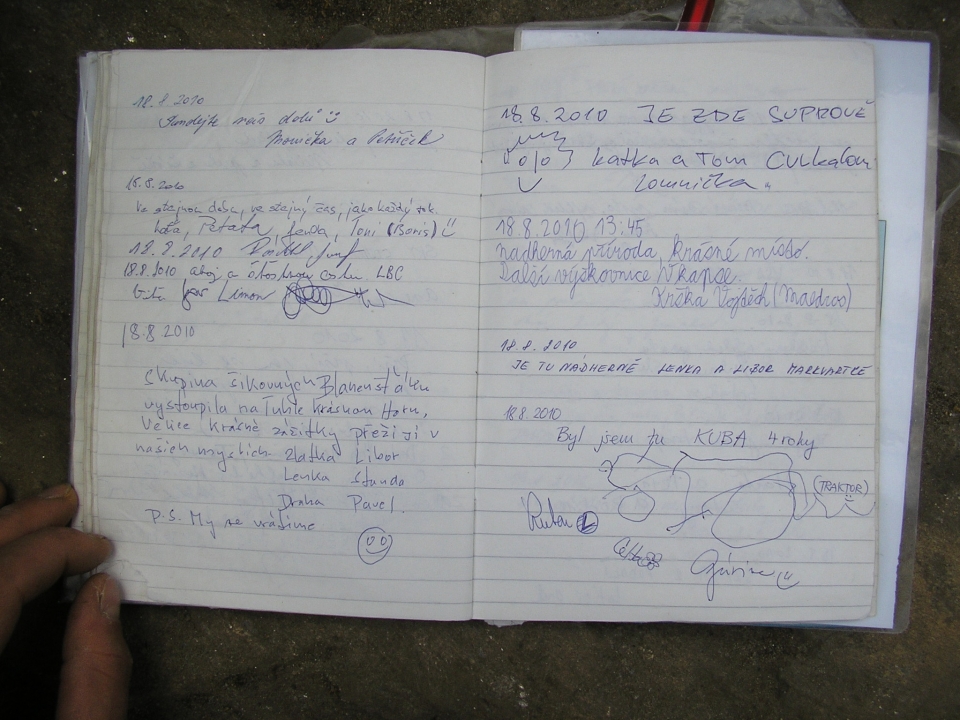 18.8.2010
Monička a Petříček
18.8.2010
ve stejnou dobu, ve stejný čas, jako každý rok
Peťata, Lenka, Toni (Boris)
18.8.2010
18.8.2010 ahoj a LBC
Limon
18.8.2010
Skupina šikovných Blanenšťáku
vystoupila na Tuhle krásnou Horu,
Velice krásné zážitky přežijí v
našich myslích Zlatka Libor
Lenka Standa
Draha Pavel.
P.S. My se vrátíme
18.8.2010 JE ZDE SUPROVĚ
katka a Tom
Lomnička
18.8.2010 13:45
nádherná příroda, krásné místo.
Další výškovnice v kapse.
Krčka Vojtěch (Maedros)
18.8.2010
JE TU NÁDHERNĚ LENKA A LIBOR MARKVARTCE
18.8.2010
Byl jsem tu KUBA 4 roky
(TRAKTOR)